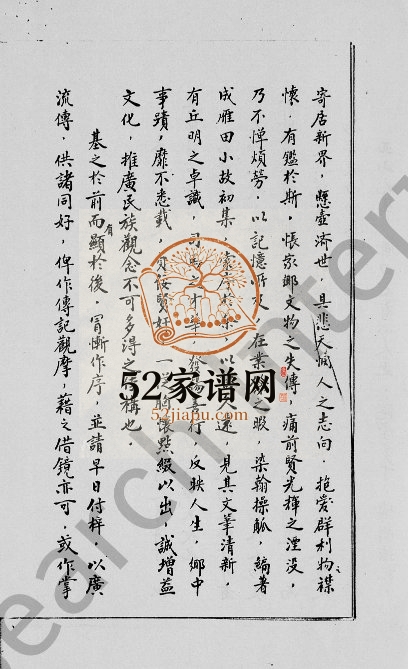 寄居新界，懸壺濟世，具悲天憫人之志向，抱愛群利物襟
懷，有鑑於斯，悵家鄉文物之失傳，痛前賢光輝之湮沒，
乃不憚煩勞，以記憶所及，在業餘之暇，染翰操觚，編著
成雁田小故初集，索序於余，以久遠，見其文筆清新，
有丘明之卓識，司馬之才華，發行，反映人生，鄉中
事蹟，靡不悉載，一從懷點綴以出，誠增益
文化，推廣民族觀念不可多得之稱也。
基之於前而有顯於後，冐慚作序，並請早日付梓，以廣
流傳，供諸同好，俾作傳記觀摩，藉之借鏡亦可，或作掌
52家谱网
52jiapu.com